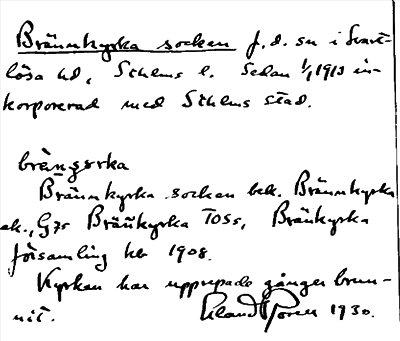 Brännkyrka socken f.d. sn i Svart-
lösa hd, Sthlms l. Sedan 1/1 1913 in-
korporerad med Sthlms stad.
brängsrka
Brännkyrka socken bek. Brännkyrka
ek., G7r Brän̄kyrka TOSs, Bränkyrka
församling hb 1908.
Kyrkan har upprepade gånger brun-
nit. Erland 1930.